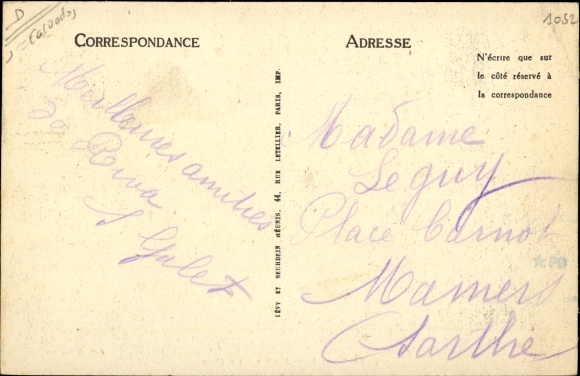 D
Calvados
1052
CORRESPONDANCE
ADRESSE
N'écrire que sur
le côté réservé à
la correspondance
Meilleures amitiés
de
S Galex
LÉVY ET NEURDEIN RÉUNIS, 44, RUE LETELLIER, PARIS, IMP.
Madame
Le guy
Place Carnot
Mamers
Sarthe